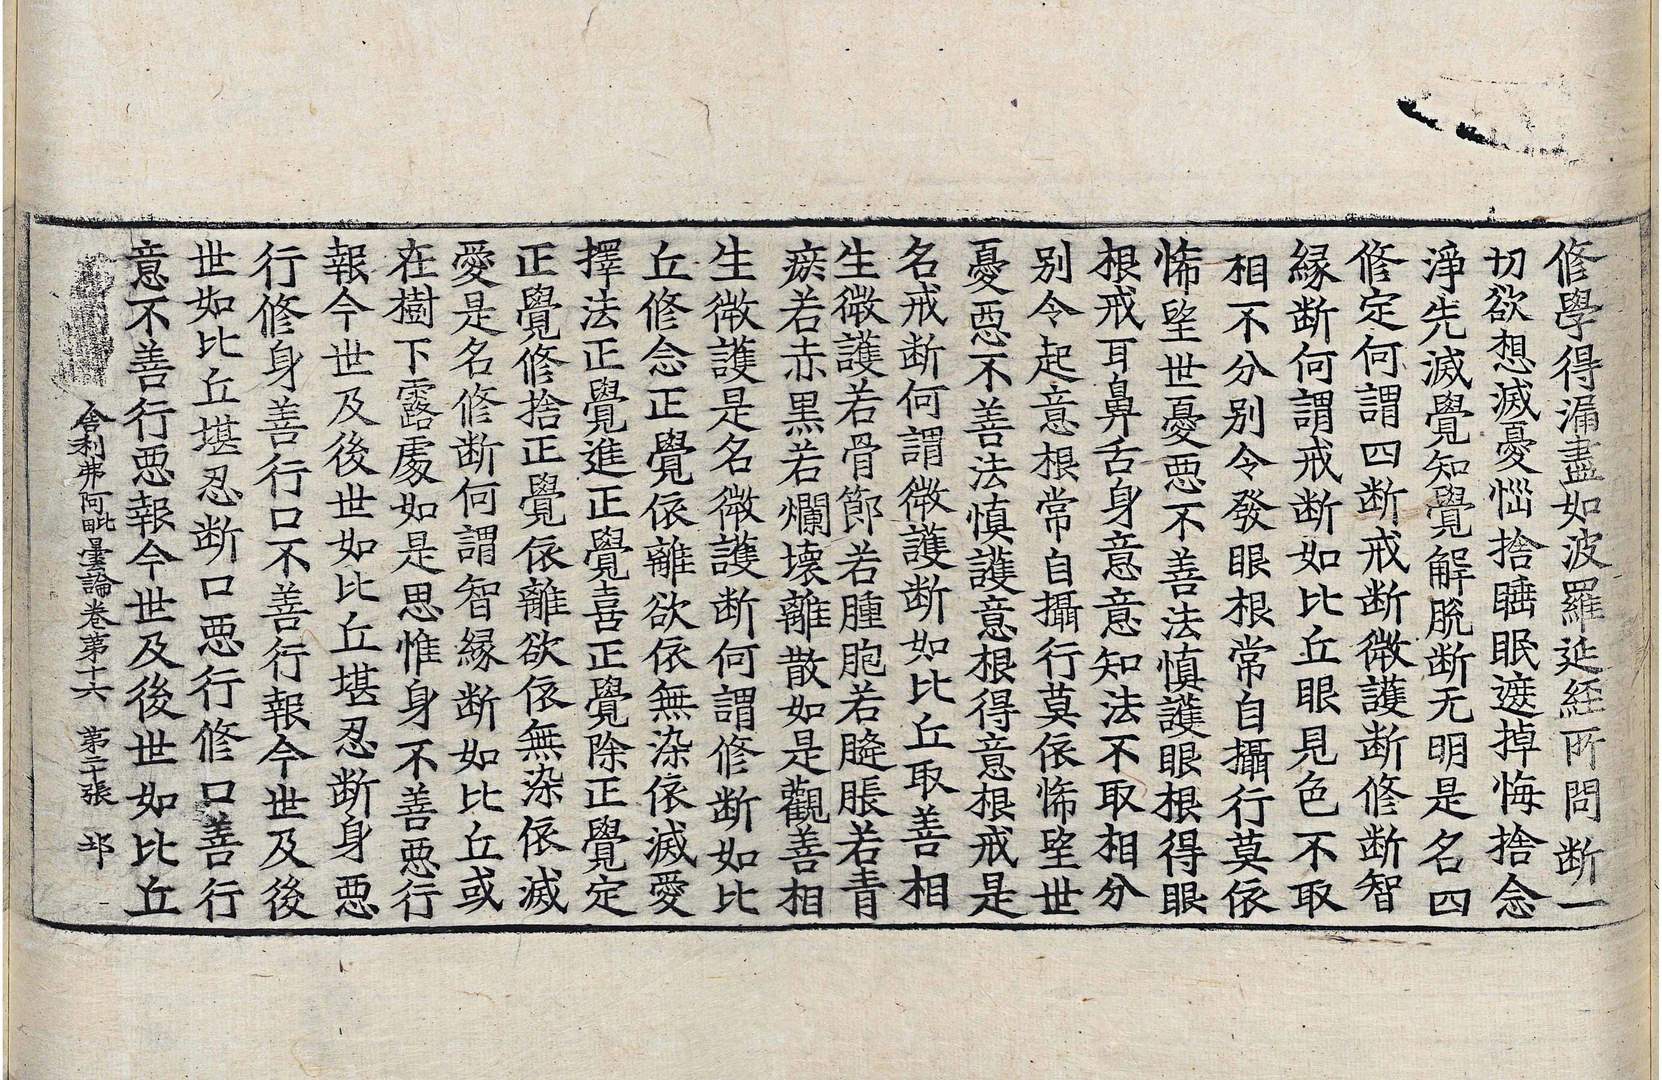 修學得漏盡如波羅延経所問断一
切欲想滅憂惱捨睡眠遮掉悔捨念
淨先滅覺知覺解脫断无明是名四
修定何謂四断戒断微護断修断智
縁断何謂戒断如比丘眼見色不取
相不分别令發眼根常自攝行莫依
悕望世憂惡不善法慎護眼根得眼
根戒耳鼻舌身意意知法不取相分
别令起意根常自攝行莫依悕望世
憂惡不善法慎護意根得意根戒是
名戒断何謂微護断如比丘取善相
生微護若骨節若腫胞若膖脹若青
瘀若赤黒若爛壊離散如是觀善相
生微護是名微護断何謂修断如比
丘修念正覺依離欲依無染依滅愛
擇法正覺進正覺喜正覺除正覺定
正覺修捨正覺依離欲依無染依滅
愛是名修断何謂智縁断如比丘或
在樹下露處如是思惟身不善惡行
報今世及後世如比丘堪忍断身惡
行修身善行口不善行報今世及後
世如比丘堪忍断口惡行修口善行
意不善行惡報今世及後世如比丘
舎利弗阿毗曇論卷第十六 第二張 㘽